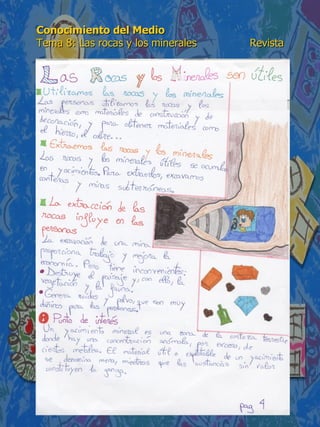 Conocimiento del Medio
Tema 8: Las rocas y los minerales Revista
Las Rocas y los Minerales son Útiles
Utilizamos las rocas y los minerales
Las personas utilizamos las rocas y los
minerales como materiales de construcción y de
decoración, y para obtener materiales como
el hierro, el cobre...
Extraemos las rocas y los minerales
Las rocas y los minerales útiles se acumulan
en yacimientos. Para extraerlos, excavamos
canteras y minas subterráneas.
La extracción de las
rocas influye en las
personas
La excavación de una mina
proporciona trabajo y mejora la
economía. Pero tiene inconvenientes:
Destruye el paisaje y, con ello, la
vegetación y la fauna.
Genera ruidos y polvo, que son muy
dañinos para las personas.
Punto de interés
Un yacimiento mineral es una zona de la corteza terrestre
donde hay una concentración anómala, por exceso, de
ciertos metales. El material útil o explotable de un yacimiento
se denomina mena, mientras que las sustancias sin valor
constituyen la ganga.
pag 4